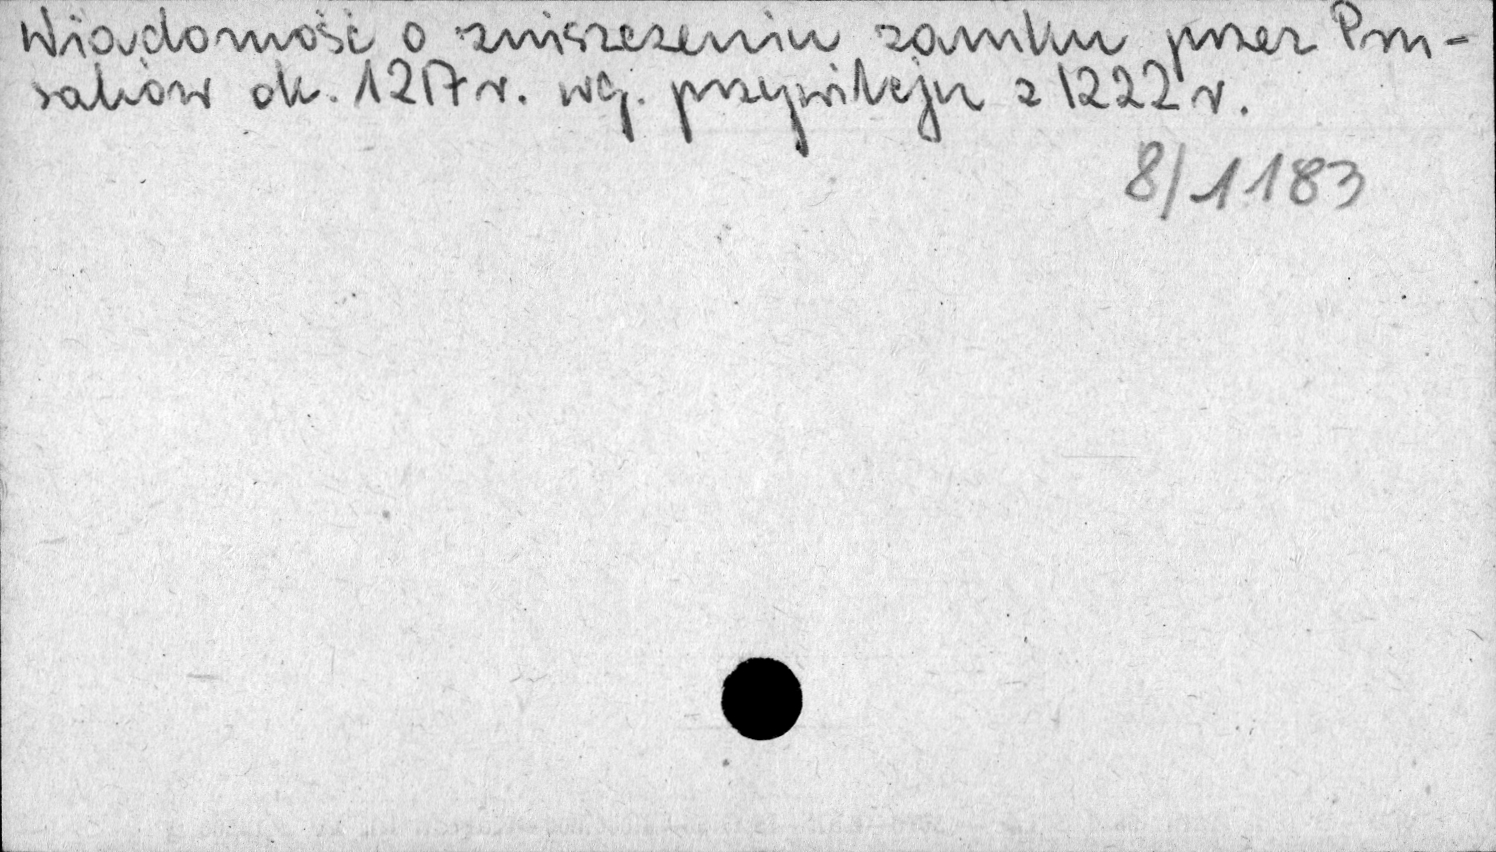 Wiadomość o zniszczeniu zamku przez Pru-
saków ok. 1217 r. wg. przywileju z 1222 r.
8/1183